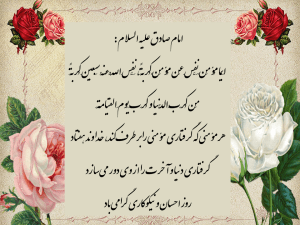 امام صادق علیه السلام:
ایما مؤمن نفس عن مؤمن کربةً نفس الله عنه سبعین کربةً
من کرب الدنیا و کرب یوم القیامة
هر مؤمنی که گرفتاری مؤمنی را برطرف کند، خداوند هفتاد
گرفتاری دنیا و آخرت را از وی دور می سازد
روز احسان و نیکوکاری گرامی باد